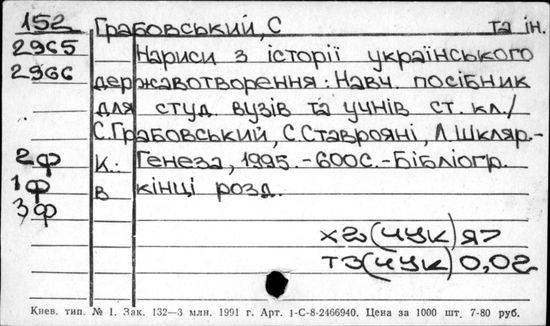 152 Грабовський, С та ін.
2965 Нариси з історії українського
2966 державотворення: Навч. посібник
для студ. вузів та учнів ст. кл./
С.Грабовський, С.Ставрояні, Л.Шкляр.-
2ф К.: Генеза, 1995.-600с.-Бібліогр.
1ф в кінці розд.
3ф
х2г(4УК)я7
т3(4УК)0,02
Киев. тип. № 1. Зак. 132—3 млн. 1991 г. Арт. 1-С-8-2466940. Цена за 1000 шт. 7-80 руб.